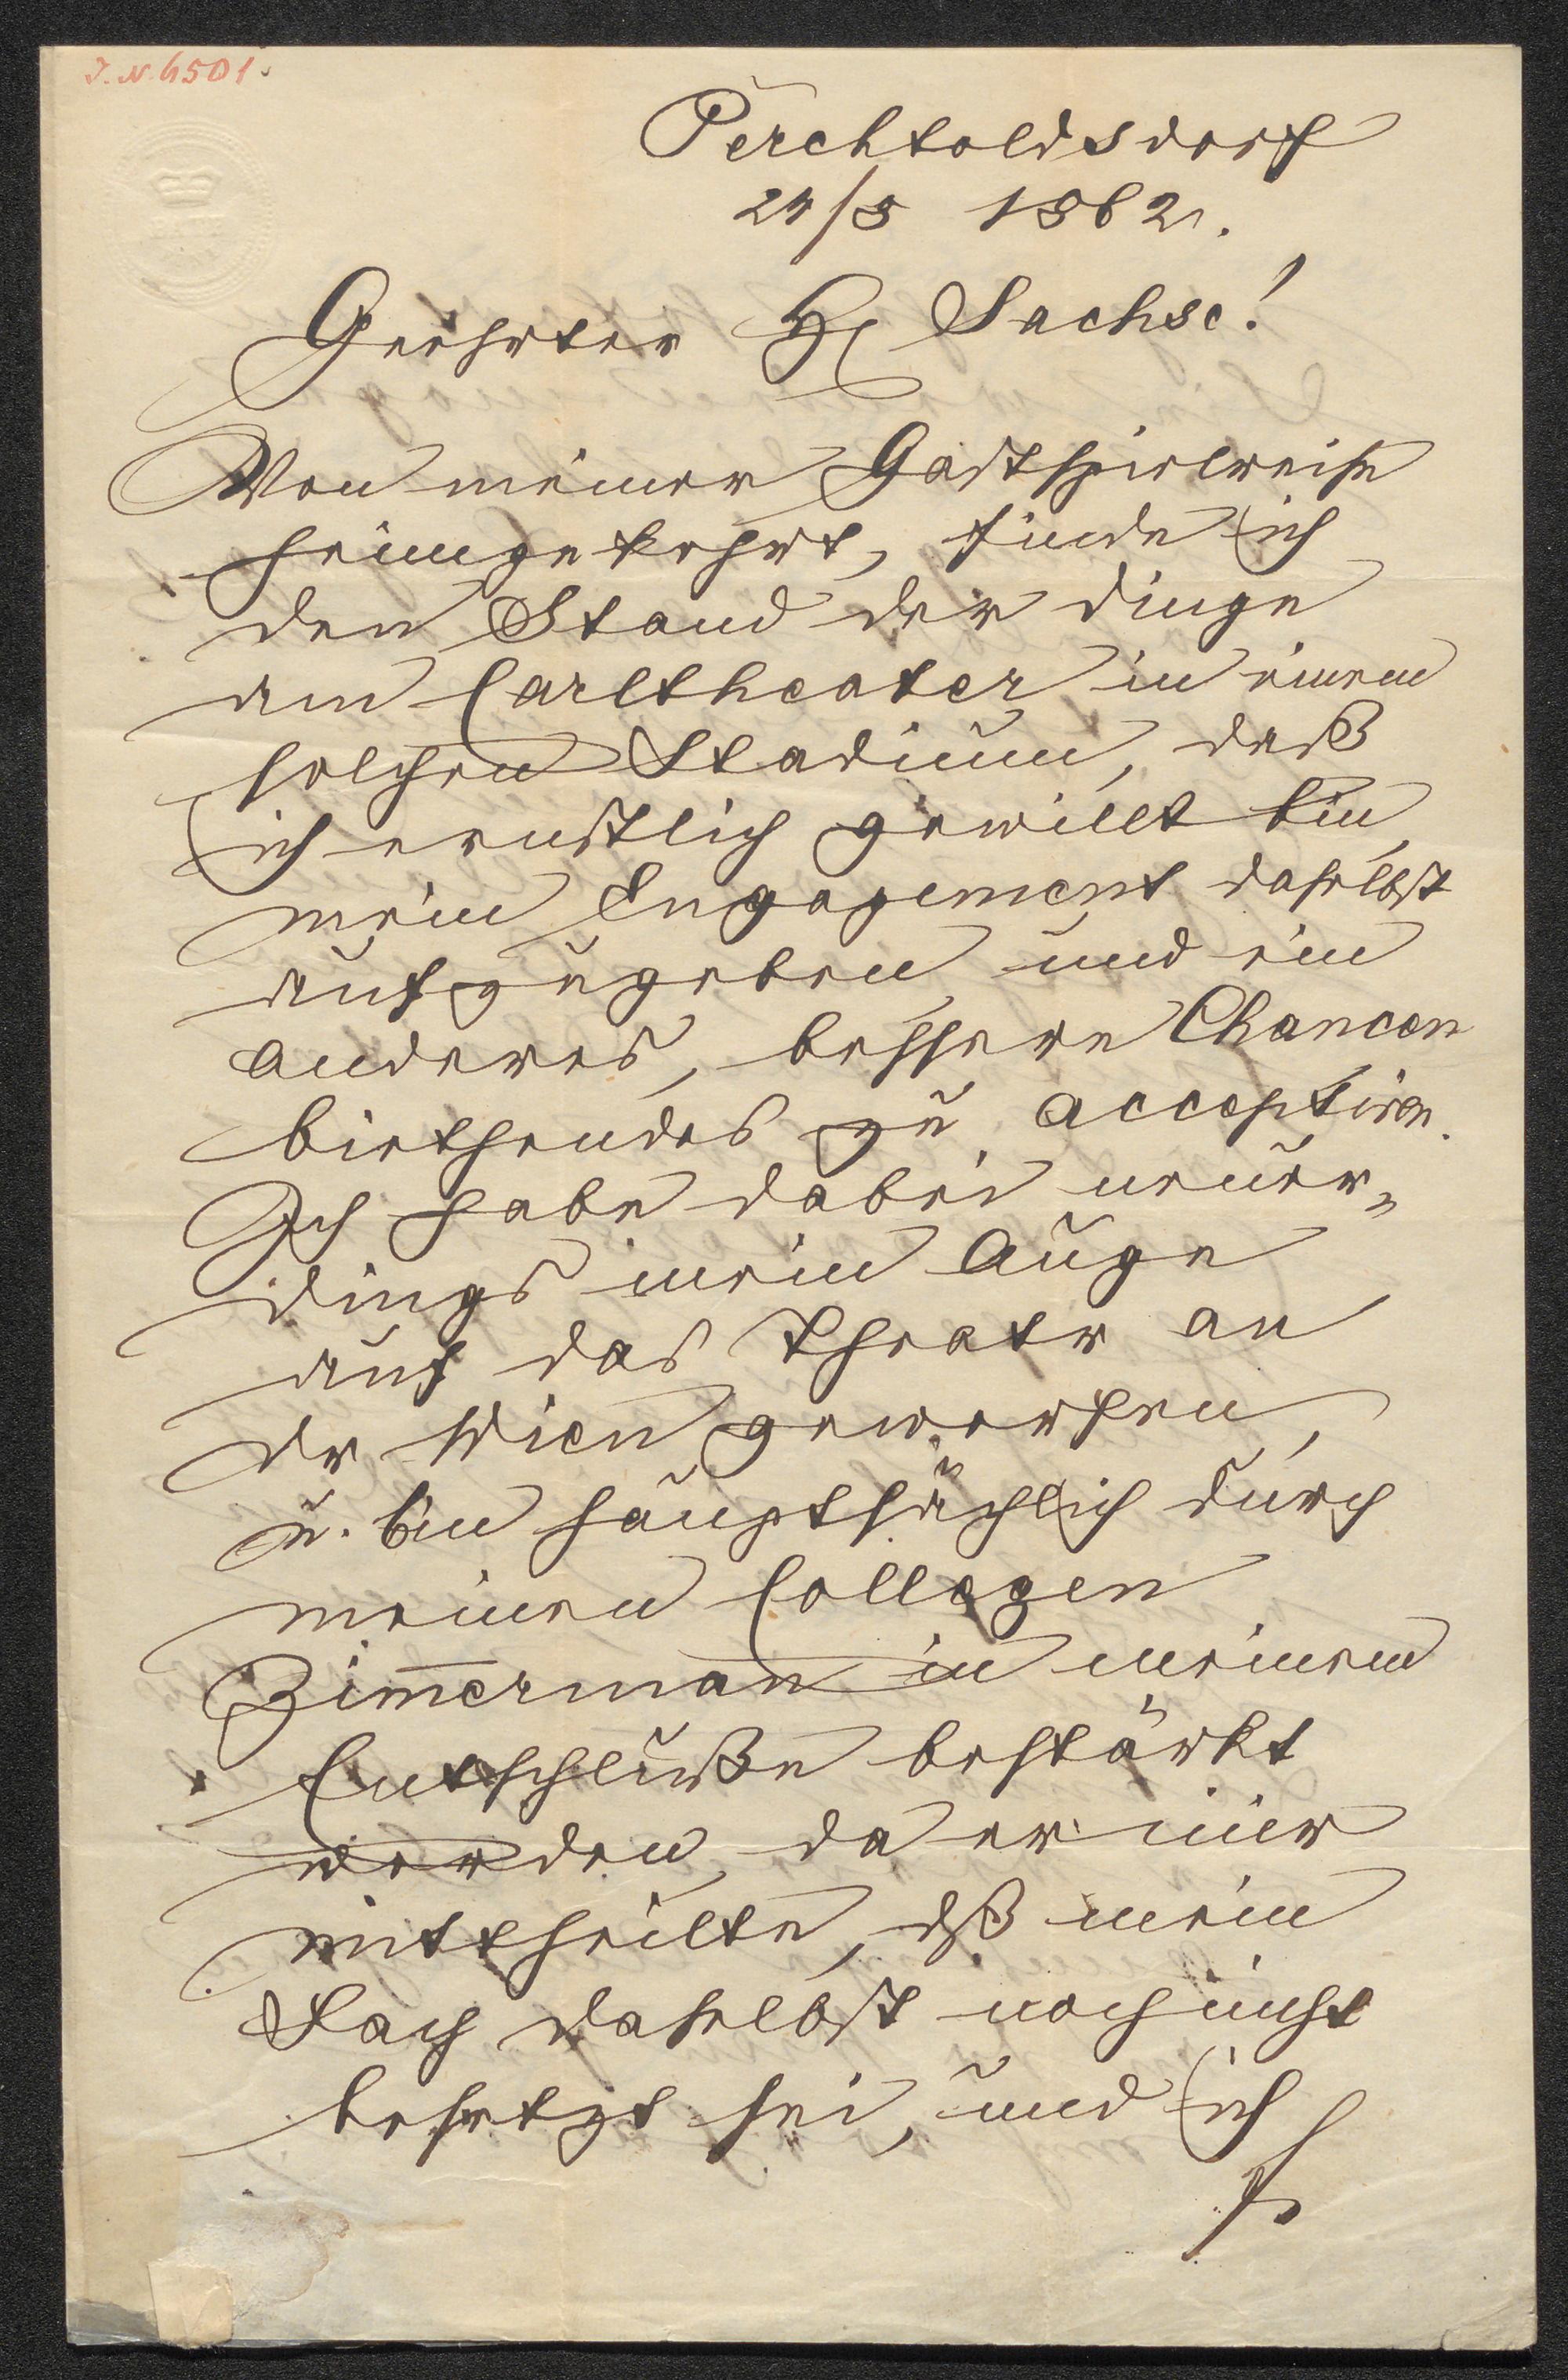 J. N. 6501.
Perchtoldsdorf
24/8 1862.
Geehrter H Sachse!
Von meiner Gastspielreise
heimgekehrt, finde ich
den Stand der Dinge
am Carltheater in einem
solchen Stadium, daß
ich ernstlich gewillt bin
mein Engagement daselbst
aufzugeben und ein
anderes, bessere Chancen
biethendes zu acceptiren.
Ich habe dabei neuer-
dings mein Auge
auf das Theater an
der Wien geworfen,
u. bin hauptsächlich durch
meinen Collegen
Zim̅erman̅ in meinem
Entschluße bestärkt
worden, da er mir
mittheilte, dß mein
Fach daselbst noch nicht
besetzt sei, und ich